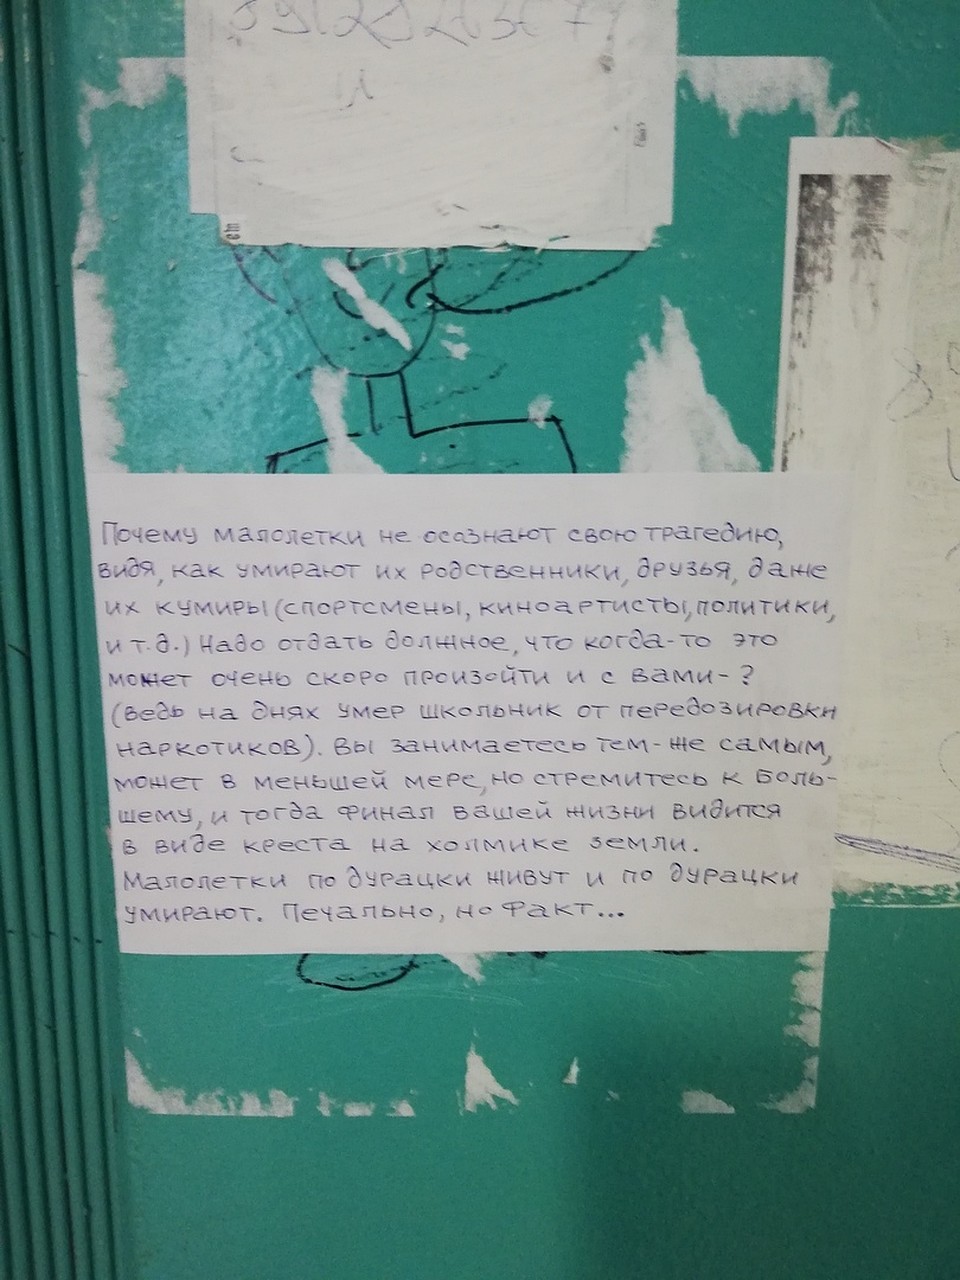 Почему малолетки не осознают свою трагедию,
видя, как умирают их родственники, друзья, даже
их кумиры (спортсмены, киноартисты, политики,
и т.д.) Надо отдать должное, что когда-то это
может очень скоро произойти и с вами-?
(ведь на днях умер школьник от передозировки
наркотиков). Вы занимаетесь тем-же самым,
может в меньшей мере, но стремитесь к боль-
шему, и тогда финал вашей жизни видится
в виде креста на холмике земли.
Малолетки по дурацки живут и по дурацки
умирают. Печально, но факт...